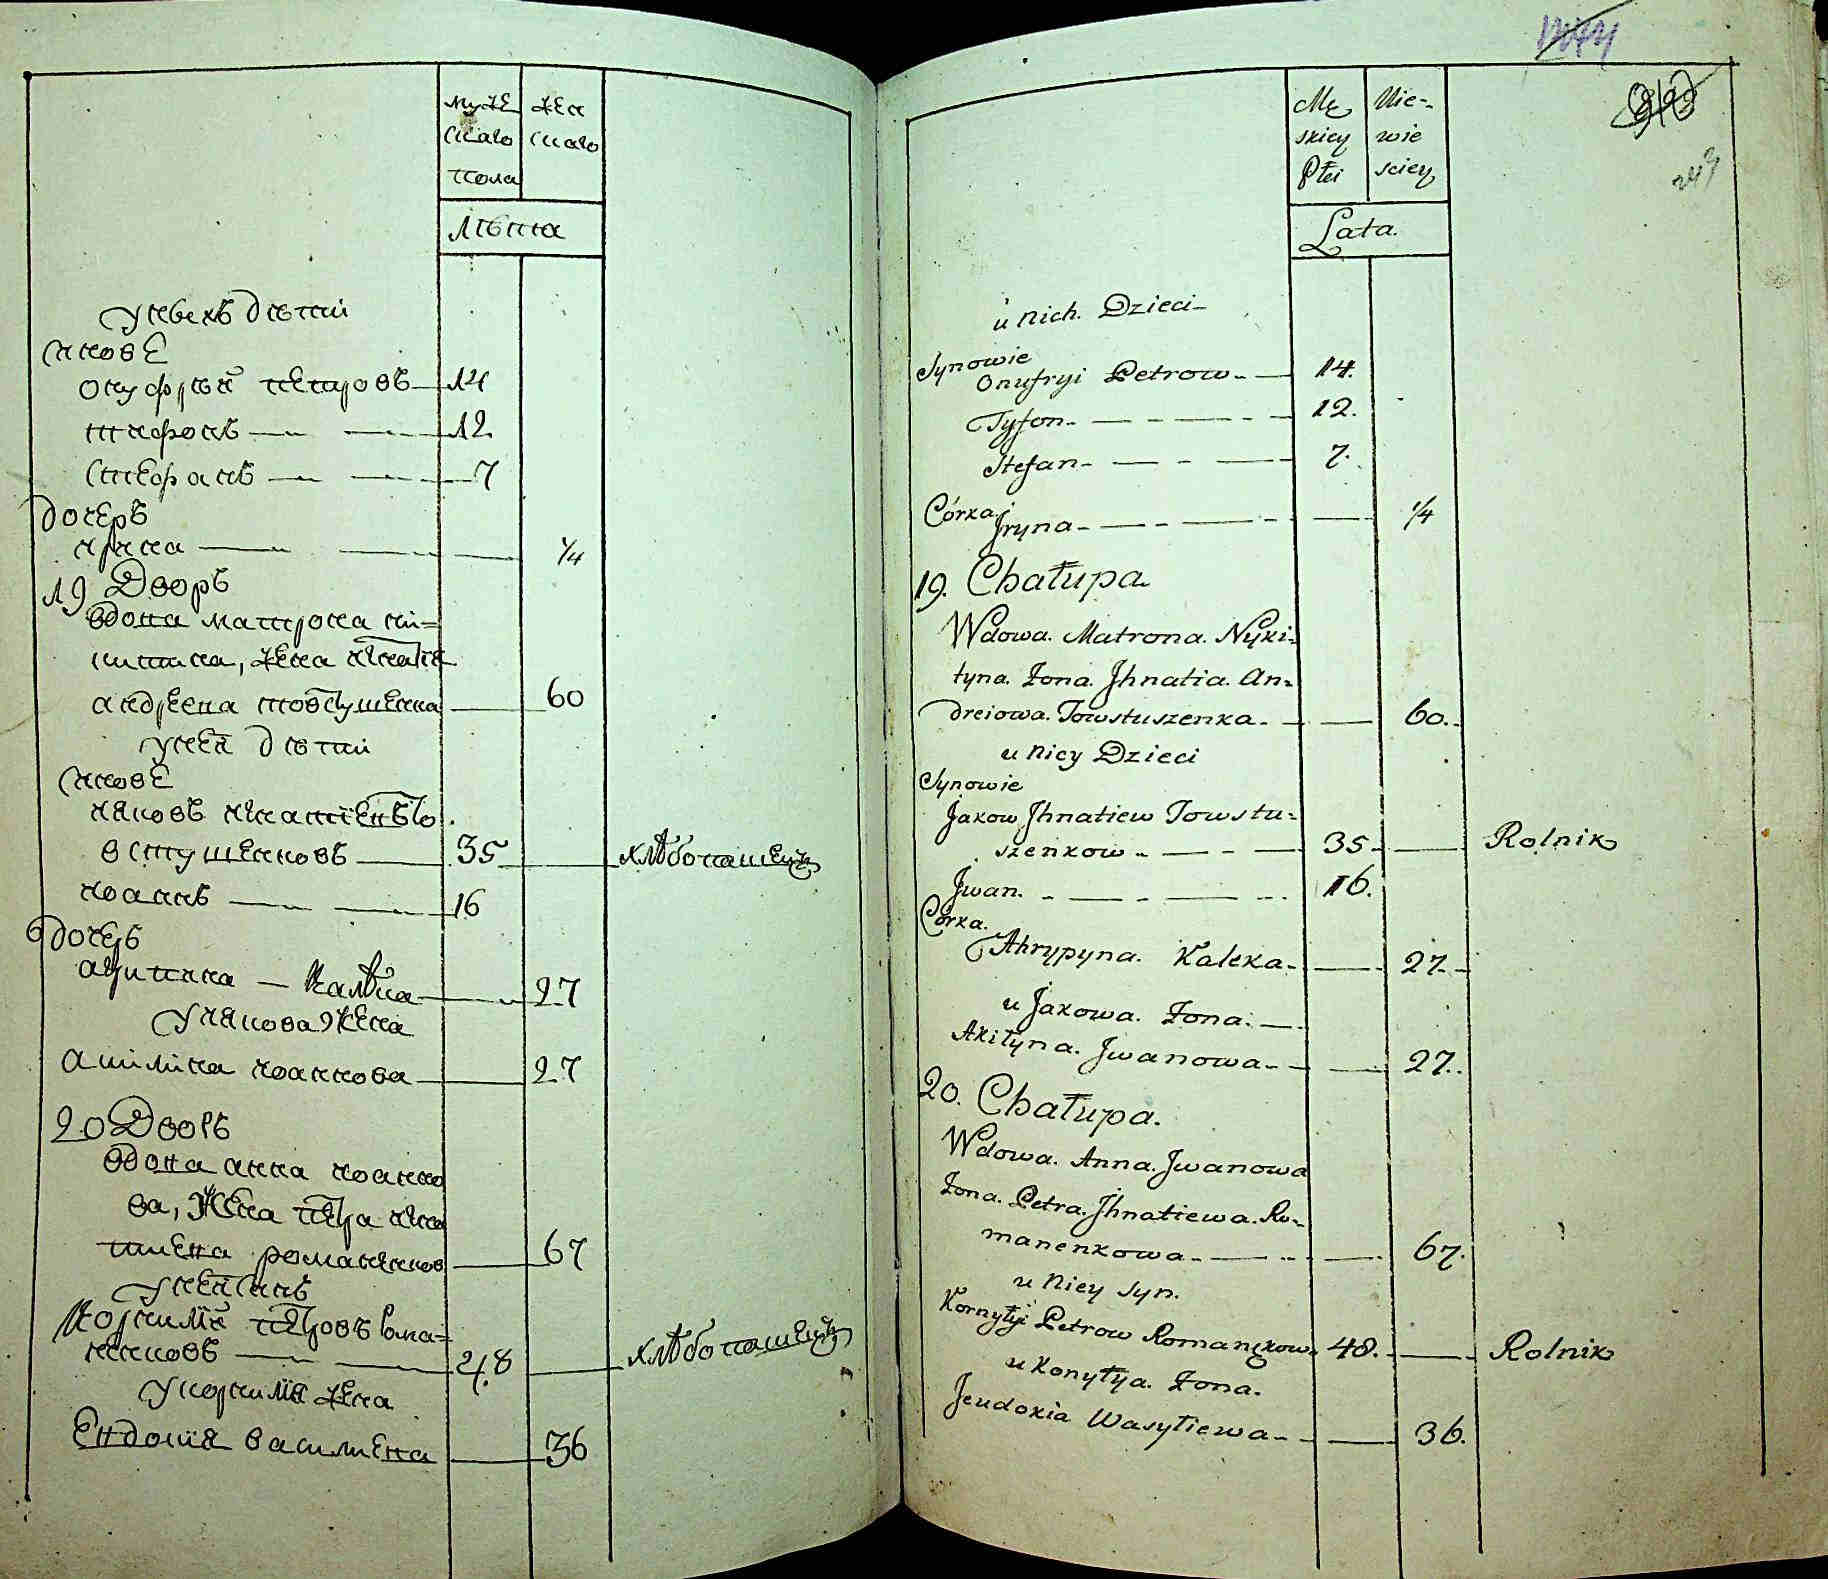 муже
скаго
пола
жен
скаго
лѣта
у нихъ дѣти
сынове
онуфрій петровъ 14
тифонъ 12
стефанъ 7
дочеръ
ирина 1/4
19 Дворъ
вдова матрона ни-
китина, жена игнатія
андреева товстушенка 60
у нея дѣти
сынове
яковъ игнатіевъ то
встушенковъ 35 хлѣбопашецъ
иоаннъ 16
дочеръ
агрипина — калѣка 27
у якова жена
акилина иоаннова 27
20 Дворъ
вдова анна иоанно
ва, жена петра игна
тиева романенков 67
у нея синъ
корнилій петровъ рома-
ненковъ 48 хлѣбопашецъ
у корнилія жена
евдокия василиева 36
Mę
skiey
Płci
Nie-
wie
sciey
Lata.
u nich. Dzieci
Synowie
Onufryi Petrow 14.
Tyfon 12.
Stefan 7.
Córka
Jryna 1/4
19. Chałupa
Wdowa. Matrona. Nyki-
tyna. Żona. Jhnatia. An-
dreiowa. Towstuszenka 60.
u Niey Dzieci
Synowie
Jakow Jhnatiew Towstu-
szenkow 35 Rolnik
Jwan. 16.
Córka.
Ahrypyna. Kaleka 27
u Jakowa. Żona.
Akiłyna. Jwanowa 27.
20. Chałupa.
Wdowa. Anna. Jwanowa
Żona. Petra. Jhnatiewa. Ro-
manenkowa 67.
u Niey Syn.
Kornyłyi Petrow Romanękow 48. Rolnik
u Konyłyja. Żona.
Jeudoxia Wasyliewa 36.